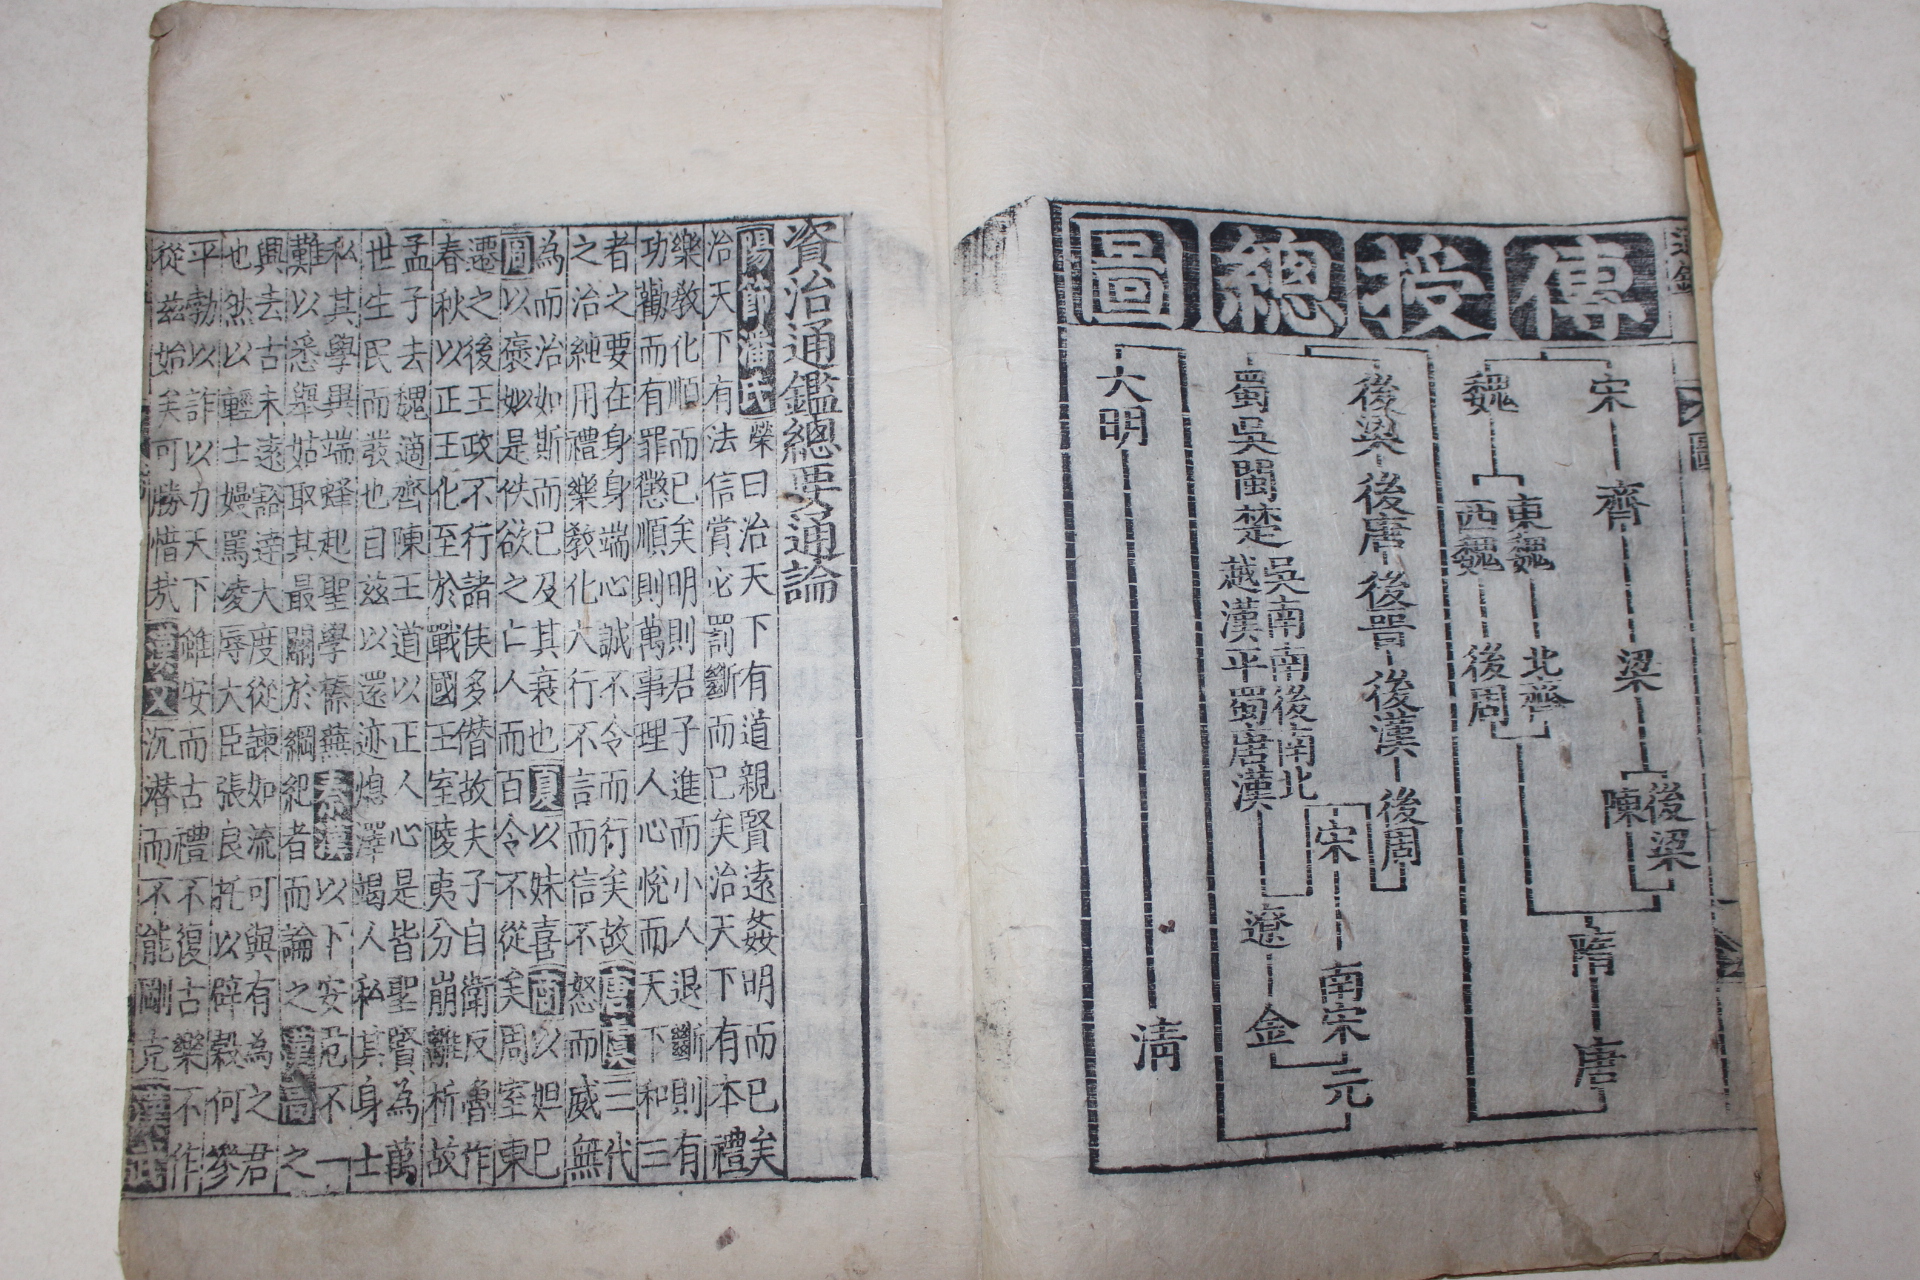 傳授總圖
宋 齊 梁 後梁
陳
魏 東魏 北齊
西魏 後周
隋 唐
後梁 後唐 後晉 後漢 後周
蜀吳閩楚吳南南後南北
越漢平蜀唐漢
宋 南宋 元
遼 金
大明 淸
資治通鑑總要通論
陽節潘氏榮曰治天下有道親賢遠姦明而已矣
治天下有法信賞必罰斷而已矣治天下有本禮
樂敎化順而已矣明則君子進而小人退斷則有
功勸而有罪懲順則萬事理人心悅而天下和三
者之要在身身端心誠不令而行矣故唐虞三代
之治純用禮樂敎化人行不言而信不怒而威無
為而治如斯而已及其衰也夏以妹喜商以妲己
周以褒姒是佚欲之亡人而百令不從矣周室東
遷之後王政不行諸侯多僭故夫子自衛反魯作
春秋以正王化至於戰國王室陵夷分崩離析故
孟子去魏適齊陳王道以正人心是皆聖賢為萬
世生民而發也自茲以還迹熄澤竭人私其身士
私其學異端蜂起聖學榛蕪秦漢以下安危不一
難以悉舉姑取其最關於綱紀者而論之漢高之
興去古未遠豁達大度從諫如流可與有為之君
也然以輕士嫚罵凌辱大臣張良託以辟穀何參
平勃以詐以力天下雖安而古禮不復古樂不作
從茲始矣可勝惜哉漢文沉潛而不能剛克漢武